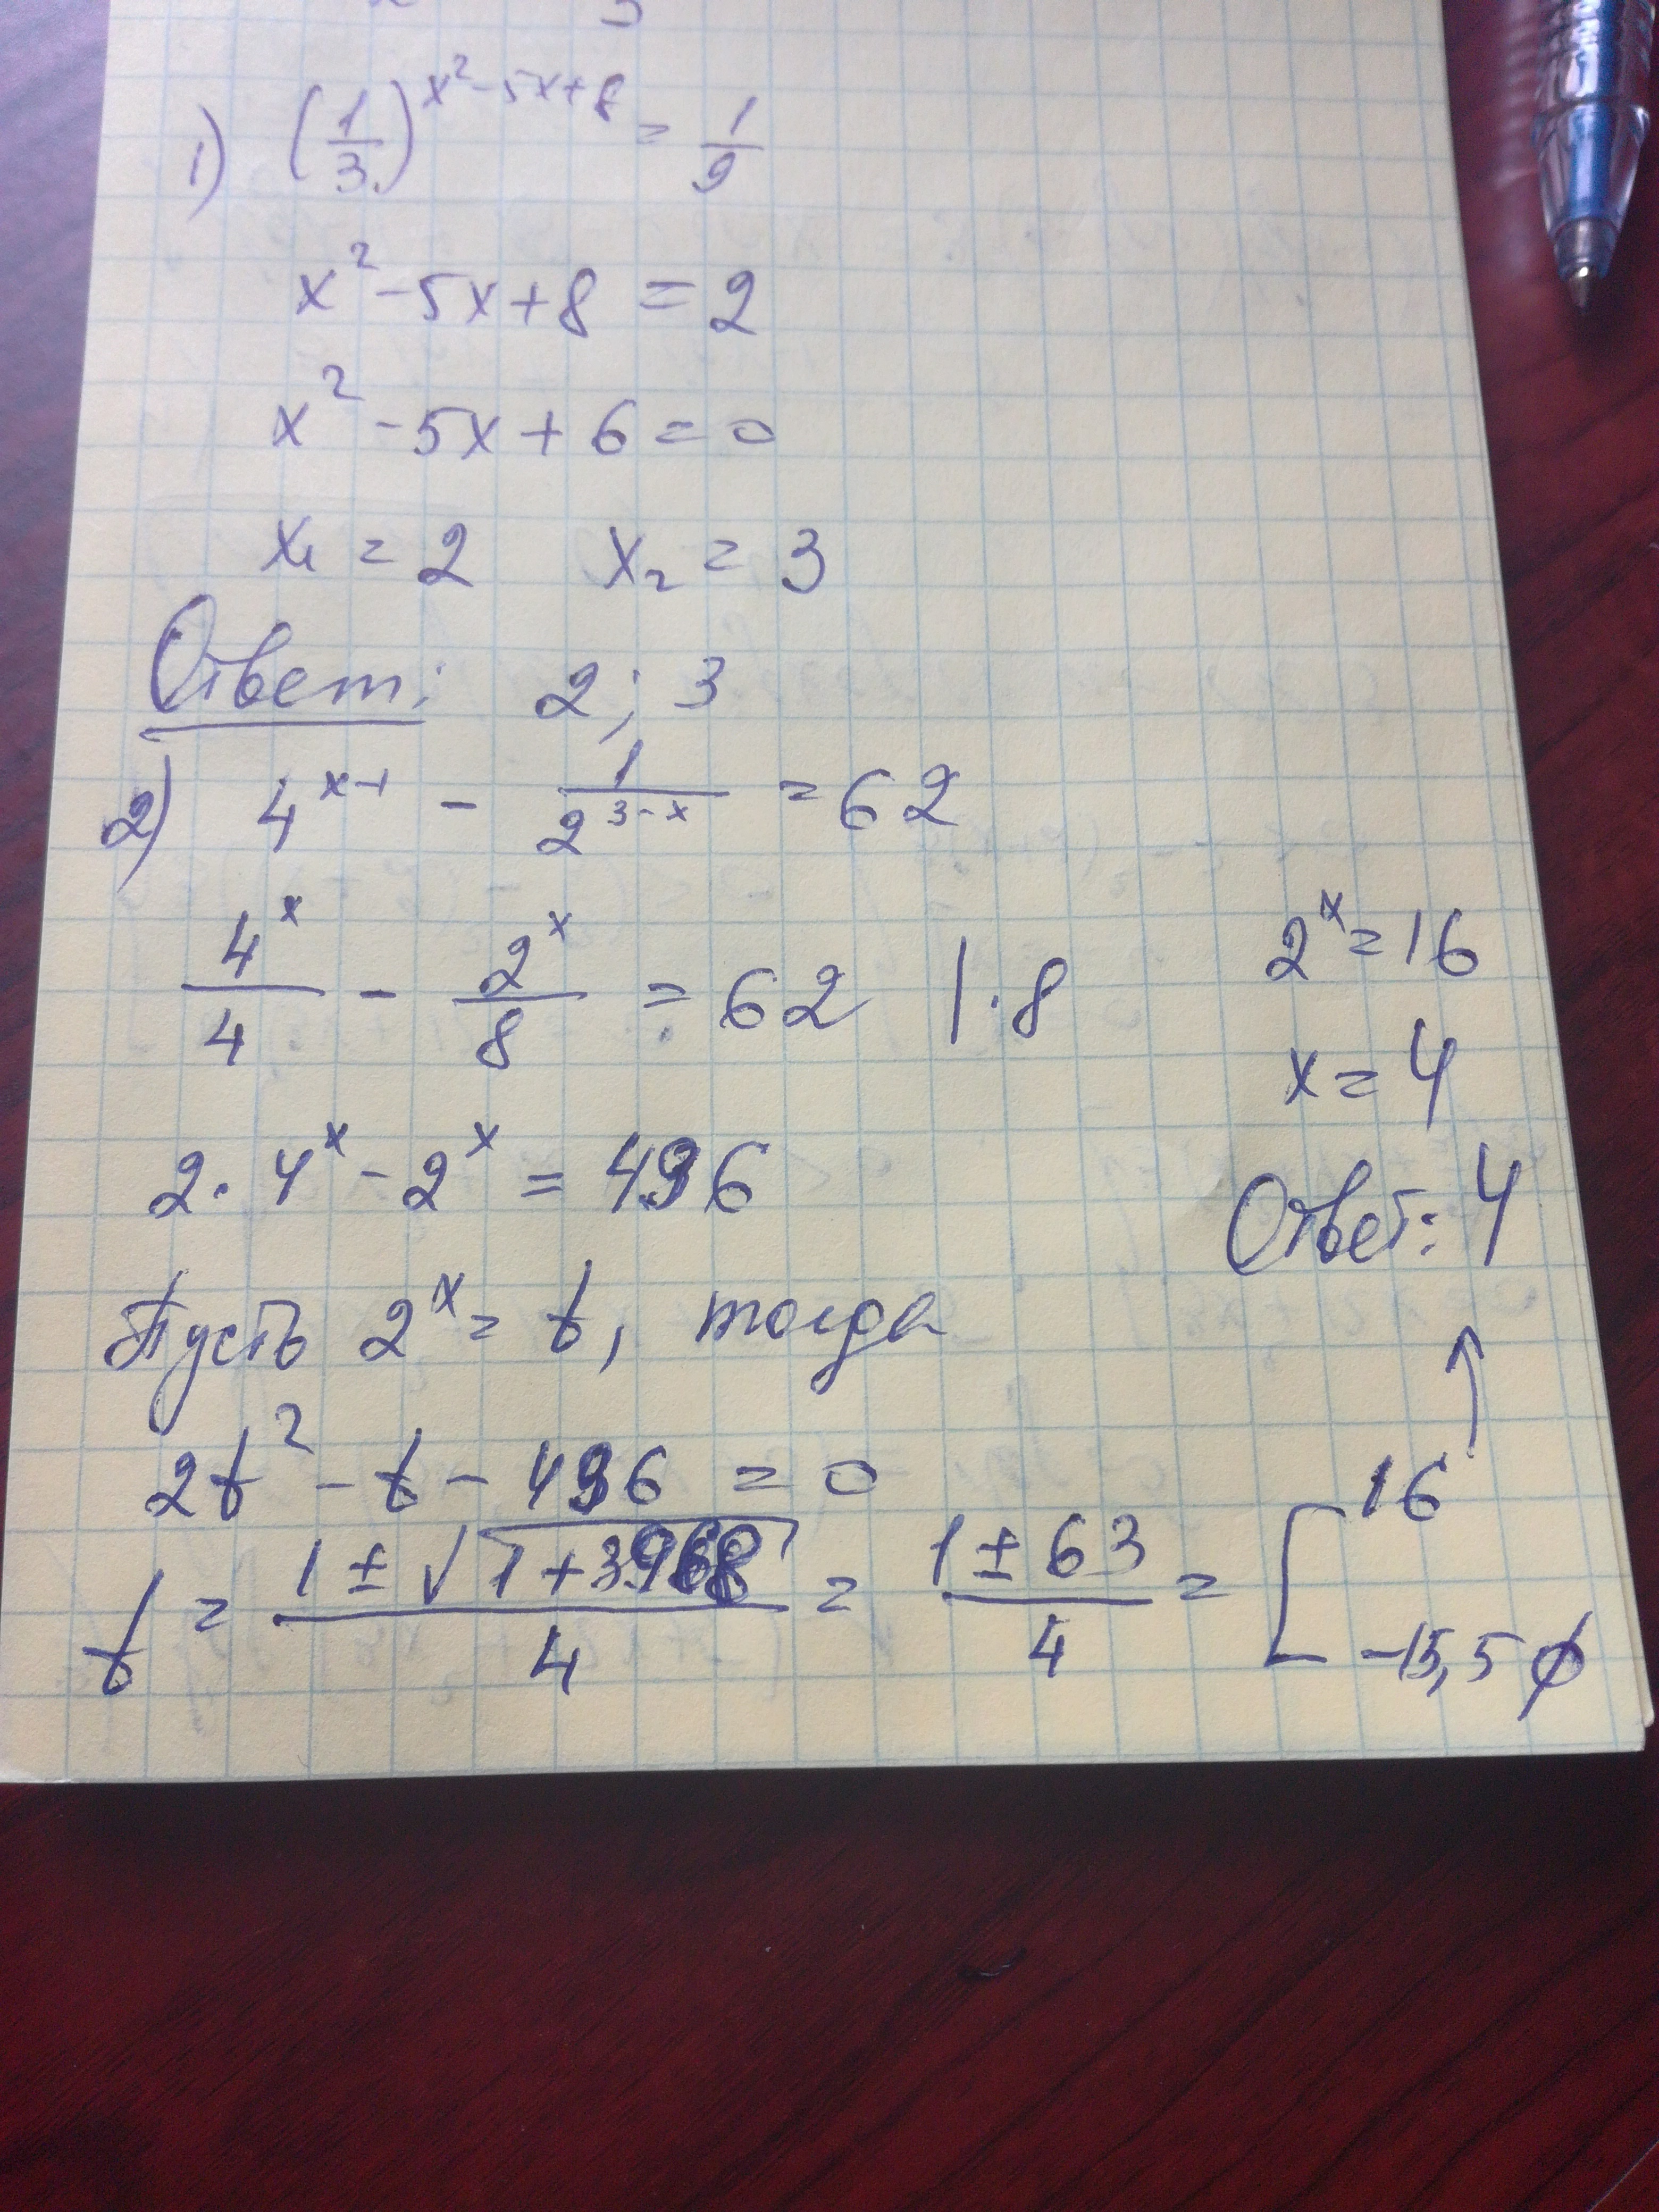 1) (1/3)^(x²-5x+8) = 1/9
x² - 5x + 8 = 2
x² - 5x + 6 = 0
x₁ = 2 x₂ = 3
Ответ: 2; 3
2) 4^(x-1) - 1/2^(3-x) = 62
4^x/4 - 2^x/8 = 62 | · 8
2 · 4^x - 2^x = 496
Пусть 2^x = t, тогда
2t² - t - 496 = 0
t = (1 ± √(1 + 3968))/4 = (1 ± 63)/4 = [ 16
-15,5 ∅
↑
2^x = 16
x = 4
Ответ: 4